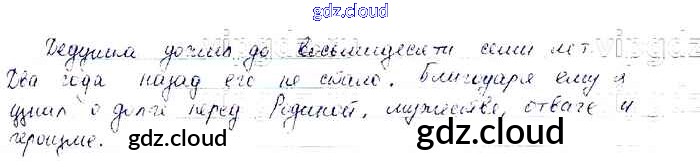 gdz.cloud
Дедушка дожил до восьмидесяти семи лет.
Два года назад его не стало. Благодаря ему я
узнал о долге перед Родиной, мужестве, отваге и
героизме.
gdz.cloud gdz.cloud